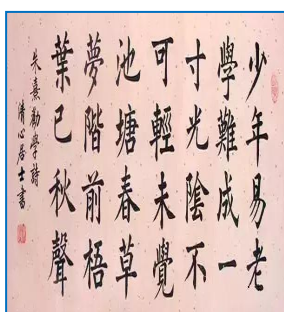 少年易老
學難成一
寸光陰不
可輕未覺
池塘春草
夢階前梧
葉已秋聲
朱熹勸學詩
清心居士書